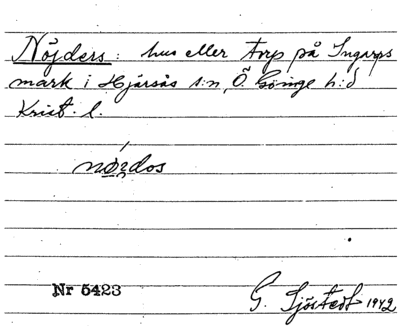 Nöjders: hus eller torp på Ingarps
mark i Hjärsås s:n, Ö. Göinge h:d
Krist. l.
Nr 5423
G. Sjöstedt 1942